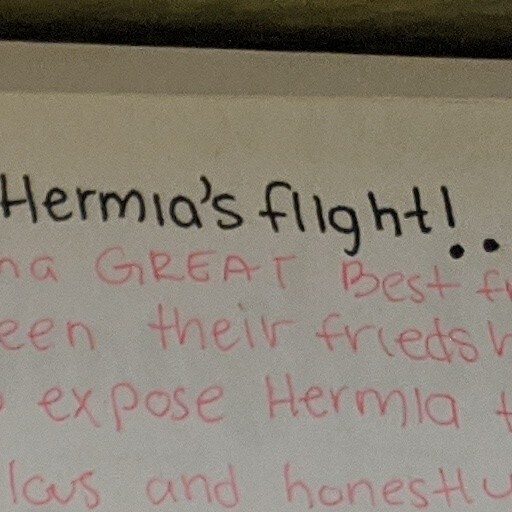 Hermia's flight!..
na GREAT Best fr
een their friedsh
expose Hermia t
lous and honestly